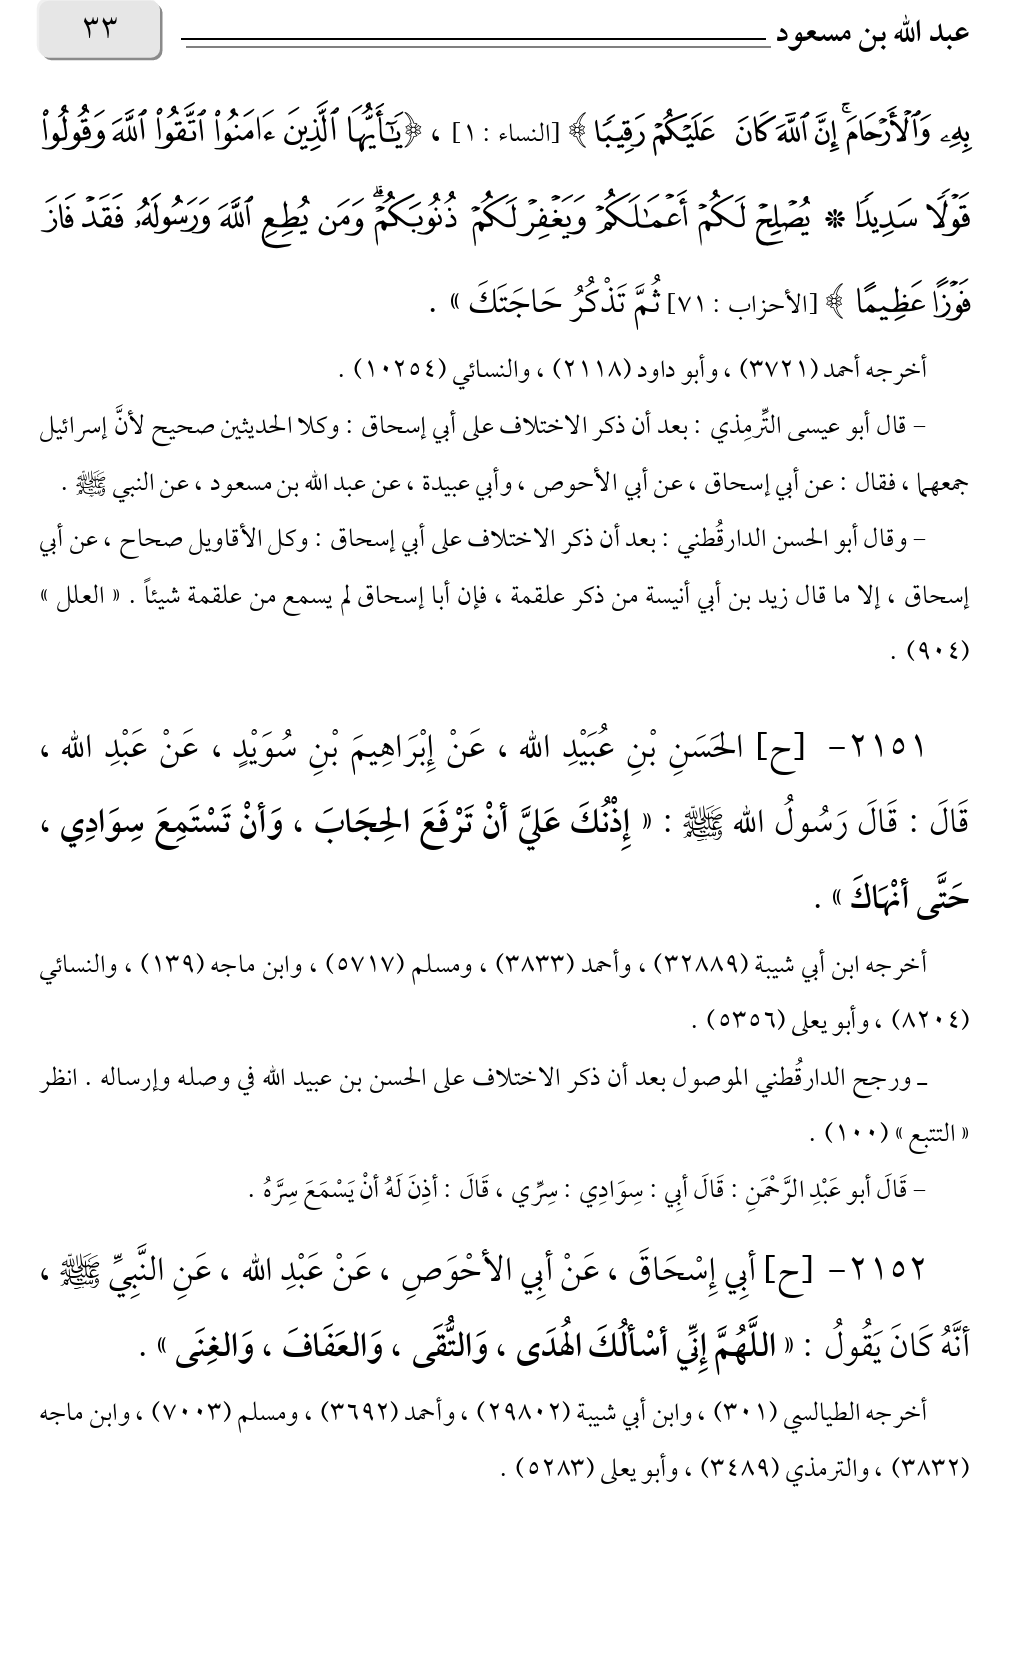 عبد الله بن مسعود ٣٣
بِهِۦ وَٱلْأَرْحَامَ ۚ إِنَّ ٱللَّهَ كَانَ عَلَيْكُمْ رَقِيبًا ﴾ [النساء : ١] ، ﴿يَٰٓأَيُّهَا ٱلَّذِينَ ءَامَنُوا۟ ٱتَّقُوا۟ ٱللَّهَ وَقُولُوا۟
قَوْلًا سَدِيدًا * يُصْلِحْ لَكُمْ أَعْمَٰلَكُمْ وَيَغْفِرْ لَكُمْ ذُنُوبَكُمْ ۗ وَمَن يُطِعِ ٱللَّهَ وَرَسُولَهُۥ فَقَدْ فَازَ
فَوْزًا عَظِيمًا ﴾ [الأحزاب : ٧١] ثُمَّ تَذْكُرُ حَاجَتَكَ » .
أخرجه أحمد (٣٧٢١) ، وأبو داود (٢١١٨) ، والنسائي (١٠٢٥٤) .
– قال أبو عيسى التِّرمِذي : بعد أن ذكر الاختلاف على أبي إسحاق : وكلا الحديثين صحيح لأنَّ إسرائيل
جمعهما ، فقال : عن أبي إسحاق ، عن أبي الأحوص ، وأبي عبيدة ، عن عبد الله بن مسعود ، عن النبي ﷺ .
– وقال أبو الحسن الدارقُطني : بعد أن ذكر الاختلاف على أبي إسحاق : وكل الأقاويل صحاح ، عن أبي
إسحاق ، إلا ما قال زيد بن أبي أنيسة من ذكر علقمة ، فإن أبا إسحاق لم يسمع من علقمة شيئاً . « العلل »
(٩٠٤) .
٢١٥١– [ح] الحَسَنِ بْنِ عُبَيْدِ الله ، عَنْ إِبْرَاهِيمَ بْنِ سُوَيْدٍ ، عَنْ عَبْدِ الله ،
قَالَ : قَالَ رَسُولُ الله ﷺ : « إِذْنُكَ عَليَّ أنْ تَرْفَعَ الحِجَابَ ، وَأنْ تَسْتَمِعَ سِوَادِي ،
حَتَّى أنْهَاكَ » .
أخرجه ابن أبي شيبة (٣٢٨٨٩) ، وأحمد (٣٨٣٣) ، ومسلم (٥٧١٧) ، وابن ماجه (١٣٩) ، والنسائي
(٨٢٠٤) ، وأبو يعلى (٥٣٥٦) .
ـ ورجح الدارقُطني الموصول بعد أن ذكر الاختلاف على الحسن بن عبيد الله في وصله وإرساله . انظر
« التتبع » (١٠٠) .
– قَالَ أبو عَبْدِ الرَّحْمَنِ : قَالَ أبِي : سِوَادِي : سِرِّي ، قَالَ : أذِنَ لَهُ أنْ يَسْمَعَ سِرَّهُ .
٢١٥٢– [ح] أبِي إِسْحَاقَ ، عَنْ أبِي الأحْوَصِ ، عَنْ عَبْدِ الله ، عَنِ النَّبِيِّ ﷺ ،
أنَّهُ كَانَ يَقُولُ : « اللَّهُمَّ إِنِّي أسْألُكَ الهُدَى ، وَالتُّقَى ، وَالعَفَافَ ، وَالغِنَى » .
أخرجه الطيالسي (٣٠١) ، وابن أبي شيبة (٢٩٨٠٢) ، وأحمد (٣٦٩٢) ، ومسلم (٧٠٠٣) ، وابن ماجه
(٣٨٣٢) ، والترمذي (٣٤٨٩) ، وأبو يعلى (٥٢٨٣) .